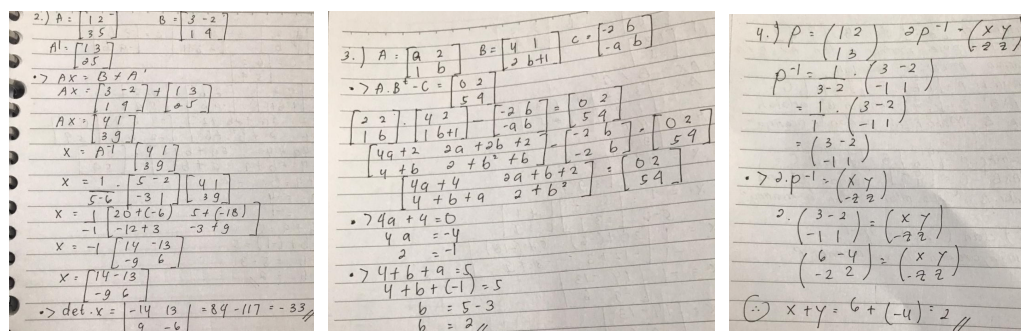 2.) A = [1 2 B = [3 -2
3 5] 1 4]
A' = [1 3
2 5]
•> AX = B + A'
AX = [3 -2 + [1 3
1 4] 2 5]
AX = [4 1
3 9]
X = A⁻¹ [4 1
3 9]
X = 1/5-6 · [5 -2 [4 1
-3 1] 3 9]
X = 1/-1 [20+(-6) 5+(-18)
-12+3 -3+9]
X = -1 [14 -13
-9 6]
X = [14 -13
-9 6]
•> det·X = |-14 13 = 84 - 117 = -33 //
9 -6|
3.) A = [a 2 B = [4 1 C = [-2 b
1 b] 2 b+1] -a b]
•> A.Bᵗ - C = [0 2
5 4]
[2 2 · [4 2 - [-2 b = [0 2
1 b] 1 b+1] -a b] 5 4]
[4a+2 2a+2b+2 - [-2 b = [0 2
4+b 2+b²+b] -2 b] 5 4]
[4a+4 2a+b+2 = [0 2
4+b+a 2+b²] 5 4]
•> 4a+4 = 0
4a = -4
2 = -1
•> 4+b+a = 5
4+b+(-1) = 5
b = 5-3
b = 2 //
4.) P = (1 2 2P⁻¹ = (x y
1 3) -z z)
P⁻¹ = 1/3-2 · (3 -2
-1 1)
= 1/1 · (3 -2
-1 1)
= (3 -2
-1 1)
•> 2.P⁻¹ = (x y
-z z)
2. (3 -2 = (x y
-1 1) -z z)
(6 -4 = (x y
-2 2) -z z)
∴ x+y = 6+(-4) = 2 //